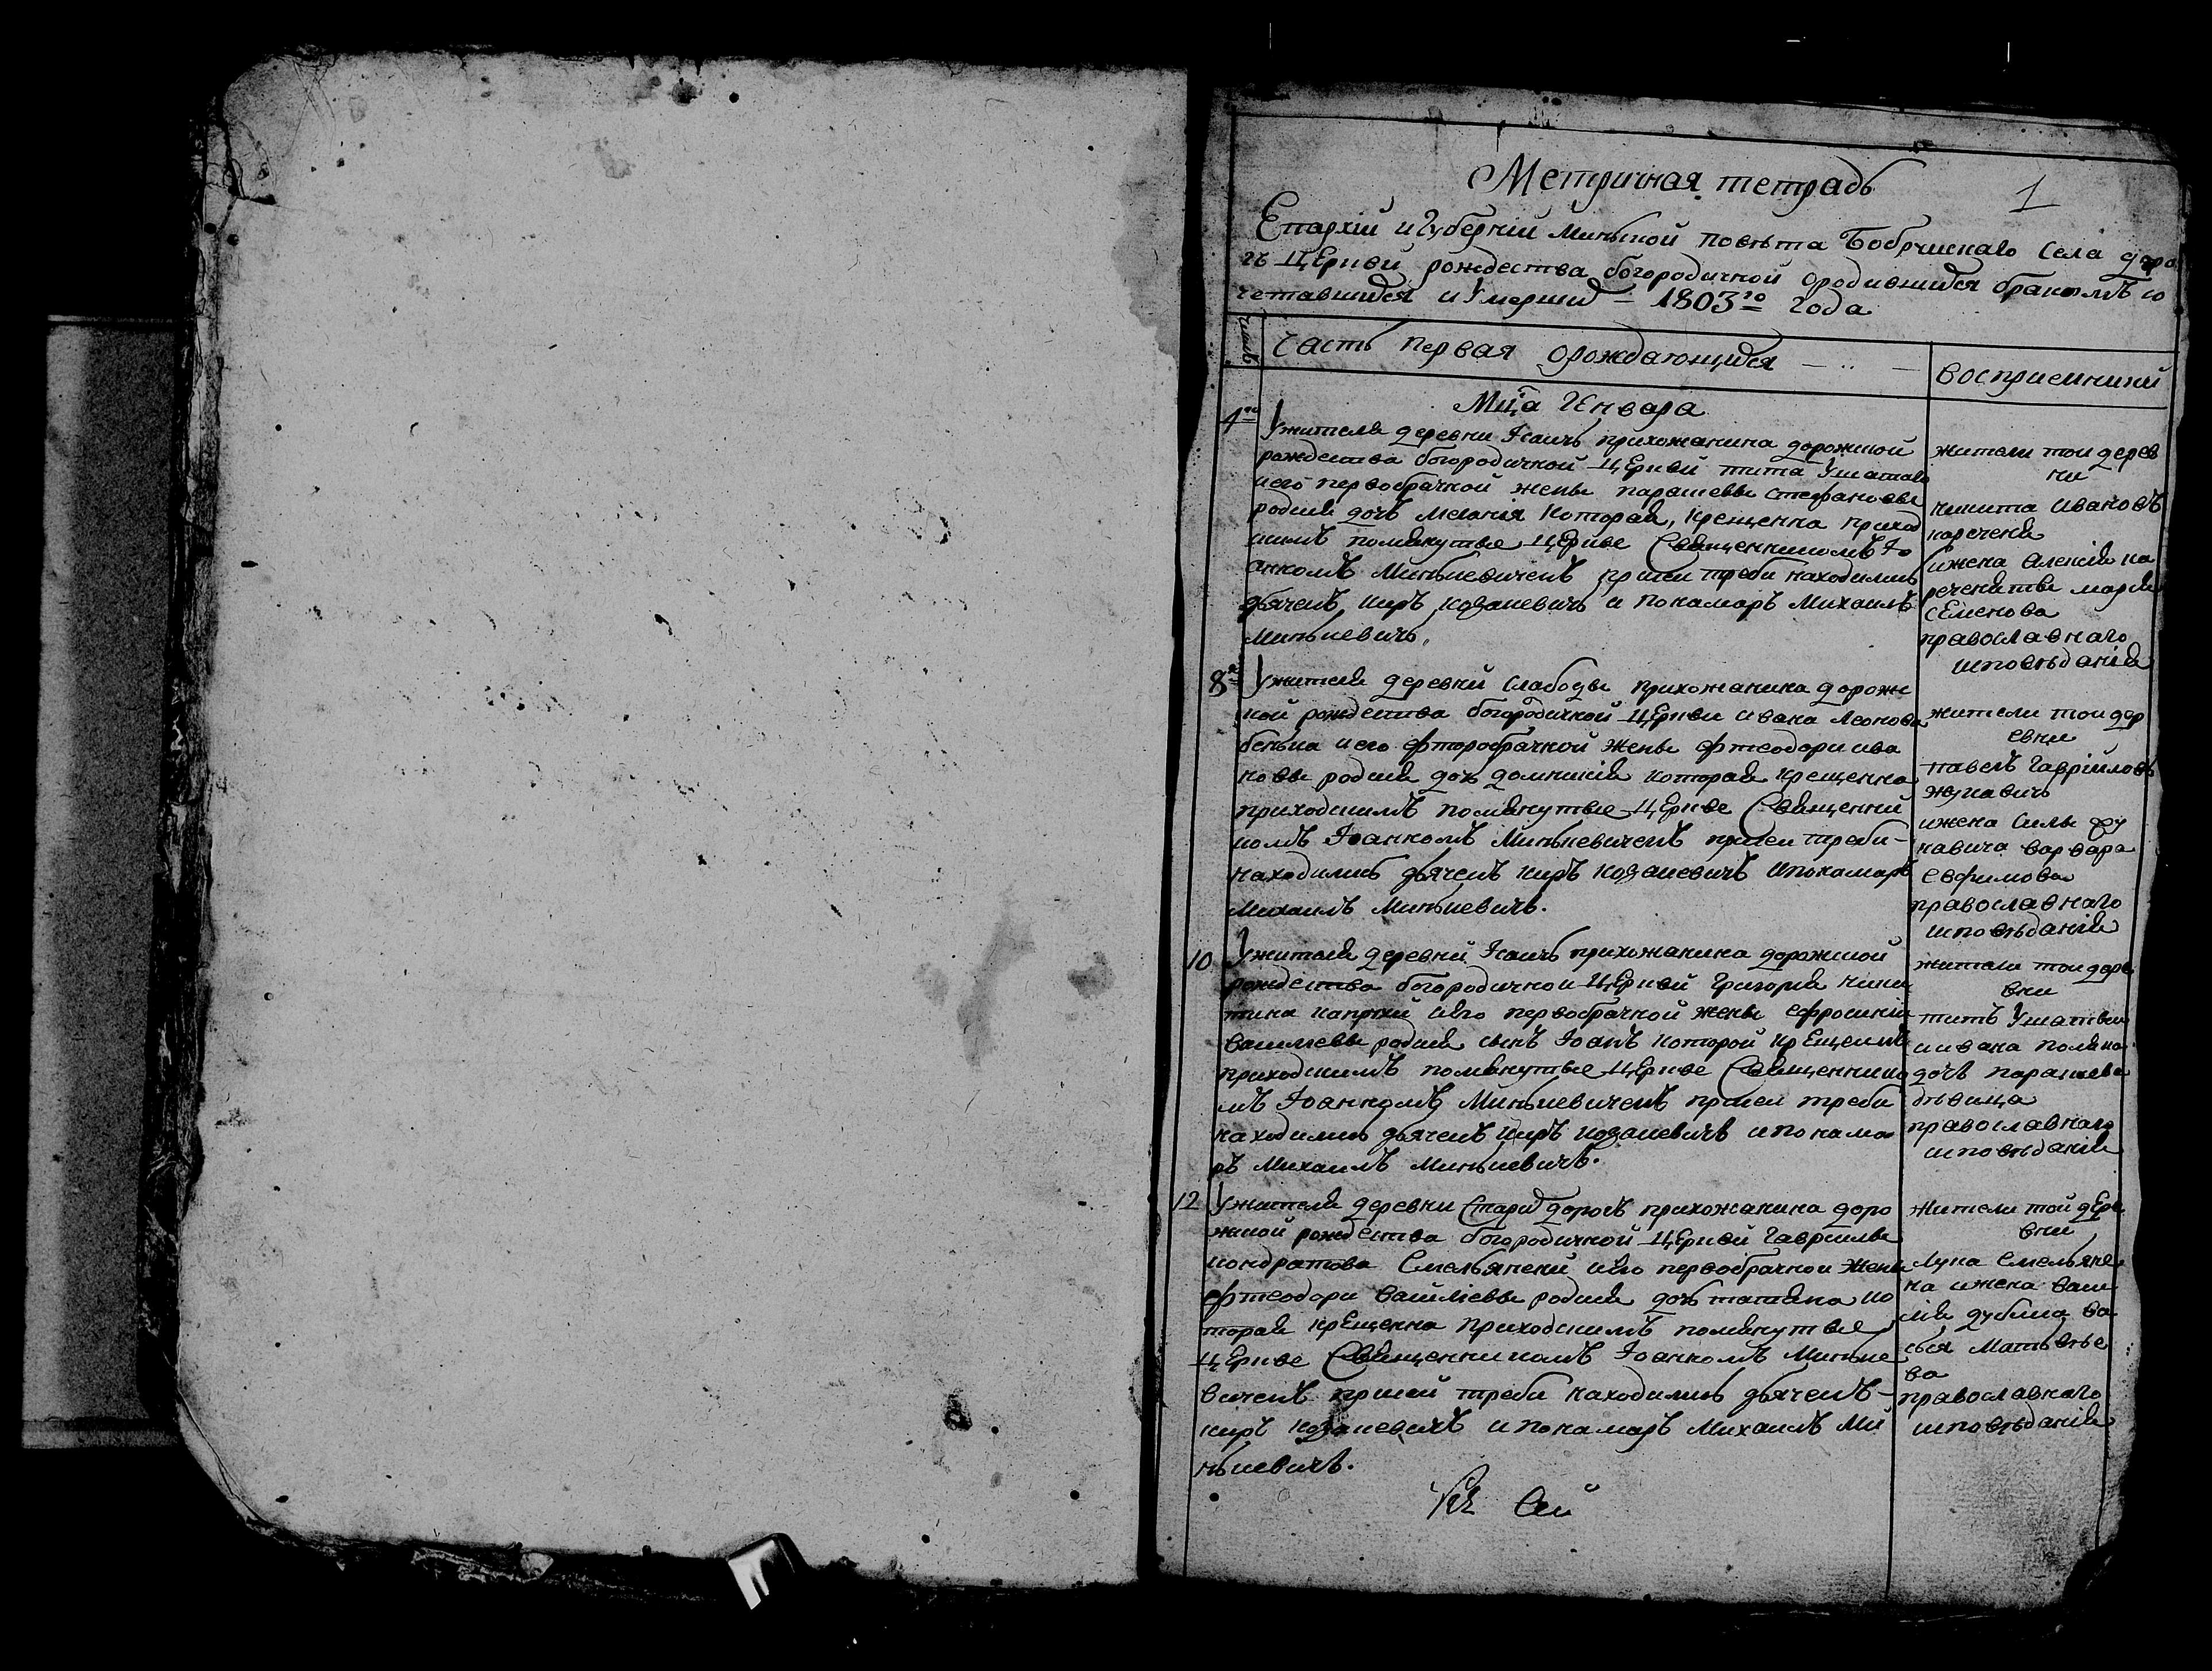 Метричная тетрадь
1
Епархіи и Губерніи Минской повѣта Бобруискаго села доро
гъ ЦЕркви рождества богородичной ородившихся бракомъ со
четавшихся и Умершихъ – 1803го года
число
Часть первая орождающихся
Восприемники
Мца Генвара
4го
Ужителя деревни Исаичъ прихожанина дорожкой
рождества богородичной ЦЕркви тита Ушатого
иего первобрачной жены парасевы стефановы
родися дочъ Меланія Которая, крещенна приход
скимъ помянутые ЦЕркве Священникомъ Іо
анномъ Минкиевичемъ приеи треби находились
дьячекъ киръ козакевичъ и Понамаръ Михаилъ
Минкиевичъ,
жители тои дерев
ни
никита Ивановъ
наречени
ижена Алексія на
реченятые марія
сЕменова
православнаго
исповѣданія
8го
Ужителя деревни слабоды прихожанина дорож
ной рождества богородичной ЦЕркви ивана леонова
бенька иего фторобрачной жены фтеодори ива
новы родися дочъ домникія которая крещенна
приходскимъ помянутые ЦЕркве Священни
комъ Іоанномъ Минкиевичемъ приеи треби –
находились дьячекъ киръ козакевичъ ипонамаръ
Михаилъ Минкиевичъ.
жители тои дер
евни
павелъ Гаврііловъ
жукавичъ
ижена Силы
кавича варвара
Ефимова
православнаго
исповѣданія
10
Ужителя деревни Исаичъ прихожанина дорожной
рождества богородичнои ЦЕркви Григорія ники
тина иего первобрачной жены ефросиніи
василіевы родися сынъ Іоанъ которой крЕщенъ
приходскимъ помянутые ЦЕркве Священнико
мъ Іоанномъ Минкиевичемъ приеи треби
находились дьячекъ киръ козакевичъ ипонама
ръ Михаилъ Минкиевичъ.
жители тои дере
вни
титъ Ушатый
иивана
дочъ парасева
дѣвица
православнаго
исповѣданія
12
Ужителя деревни Старихъ дорогъ прихожанина доро
жной рождества богородичной ЦЕркви Гавриила
кондратова Емельянени иего первобрачнои жены
фтеодори василіевы родися дочъ татіана ко
торая крЕщенна приходскимъ помянутые
ЦЕркве Священникомъ Іоанномъ Минкие
вичемъ приеи треби находились дьячекъ –
киръ козакевичъ и понамаръ Михаилъ Ми
нкиевичъ.
Жители той дЕре
вни
Лука Емельяне
ка ижена васи
лія дубика ва
сься Матвѣе
ва
православнаго
исповѣданія